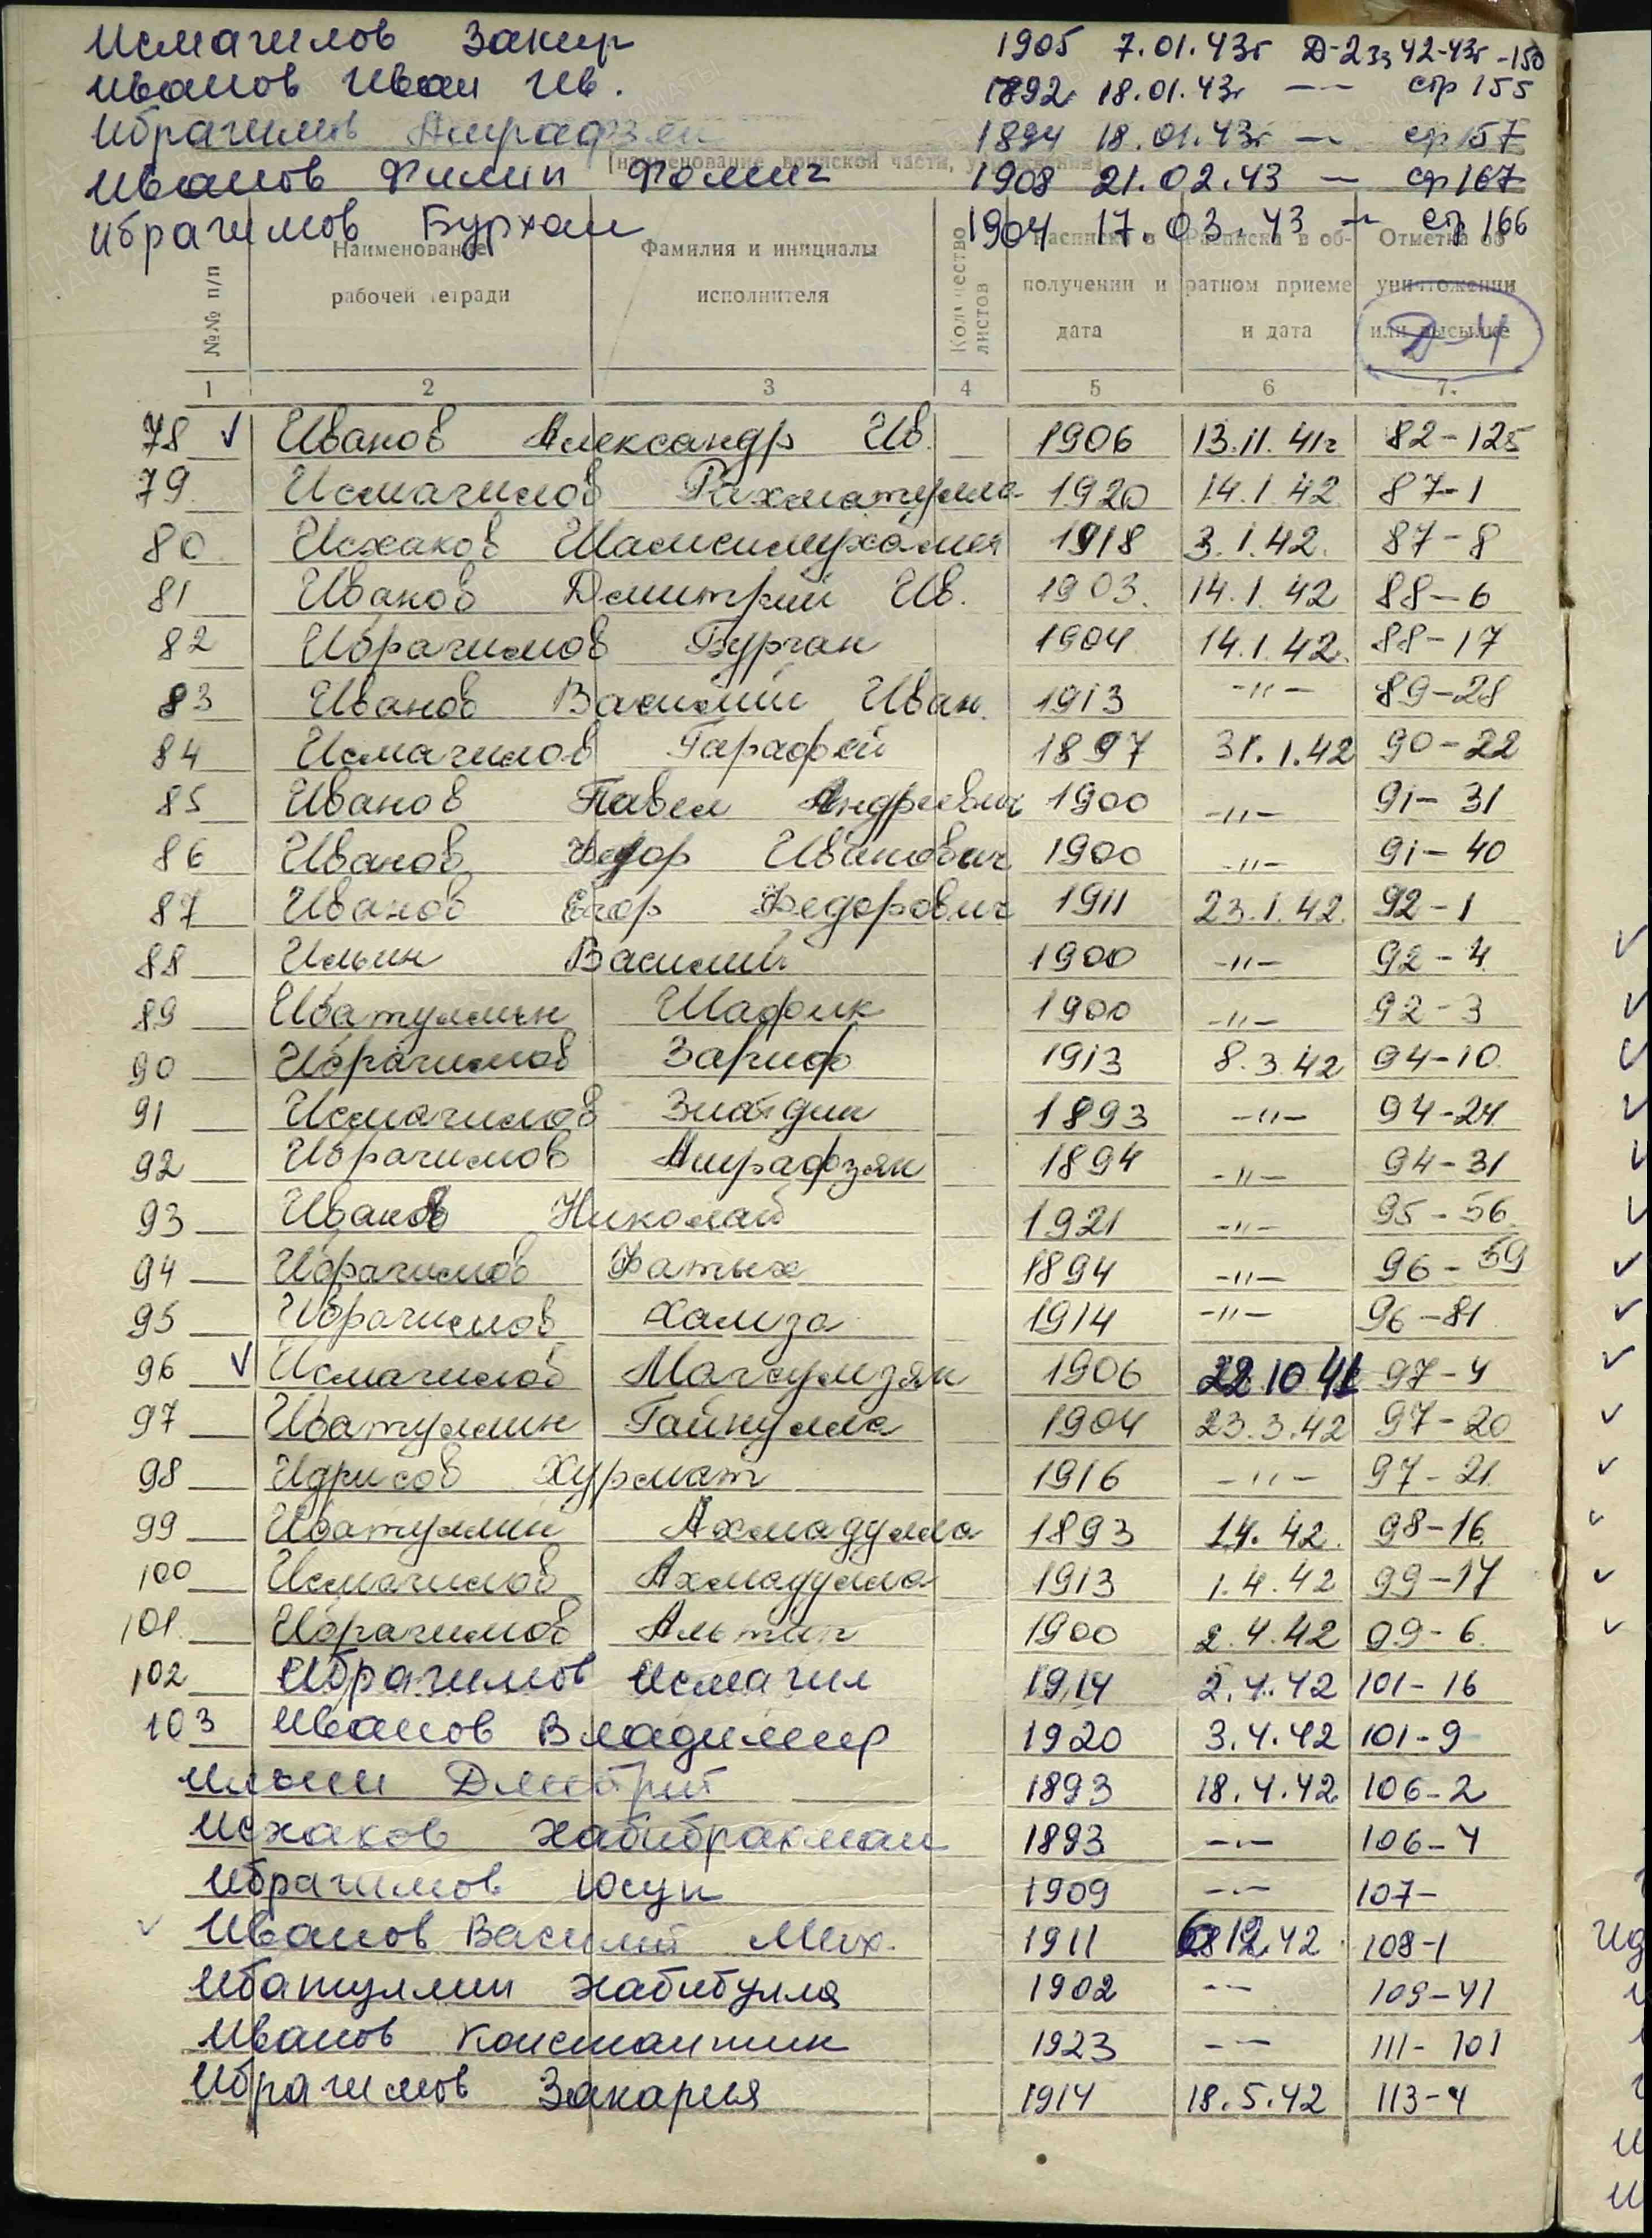 Исмагилов Закир 1905 7.01.43г Д-2 зз 42-43г -150
Иванов Иван Ив. 1892г 18.01.43г — стр 155
Ибрагимов Ашрафзян 1894 18.01.43г — стр 157
(наименование воинской части, учреждения)
Иванов Филип Фомич 1908 21.02.43 — стр 167
Ибрагимов Бурхан 1904 17.03.43 — стр 166
№№ п/п Наименование рабочей тетради Фамилия и инициалы исполнителя Количество листов Расписка в получении и дата Расписка в обратном приеме и дата Отметка об уничтожении или высылке
Д-4
1 2 3 4 5 6 7.
78 ✓ Иванов Александр Ив. 1906 13.11.41г 82-125
79 Исмагилов Рахматулла 1920 14.1.42 87-1
80 Исхаков Шамсимухамет 1918 3.1.42. 87-8
81 Иванов Дмитрий Ив. 1903. 14.1.42 88-6
82 Ибрагимов Бурган 1904 14.1.42. 88-17
83 Иванов Василий Иван. 1913 -"- 89-28
84 Исмагилов Гарафей 1897 31.1.42 90-22
85 Иванов Павел Андреевич 1900 -"- 91-31
86 Иванов Федор Иванович 1900 -"- 91-40
87 Иванов Егор Федорович 1911 23.1.42. 92-1
88 Ильин Василий 1900 -"- 92-4
89 Ибатуллин Шафик 1900 -"- 92-3
90 Ибрагимов Зариф 1913 8.3.42 94-10
91 Исмагилов Зиатдин 1893 -"- 94-24
92 Ибрагимов Ашрафзян 1894 -"- 94-31
93 Иванов Николай 1921 -"- 95-56
94 Ибрагимов Фатых 1894 -"- 96-59
95 Ибрагимов Хамза 1914 -"- 96-81
96 ✓ Исмагилов Магсумзян 1906 22.10.41 97-4
97 Ибатуллин Гайнулла 1904 23.3.42 97-20
98 Идрисов Хурмат 1916 -"- 97-21
99 Ибатуллин Ахмадулла 1893 1.4.42. 98-16
100 Исмагилов Ахмадулла 1913 1.4.42 99-17
101. Ибрагимов 1900 2.4.42 99-6
102 Ибрагимов Исмагил 1914 2.4.42 101-16
103 Иванов Владимир 1920 3.4.42 101-9
Ильин Дмитрий 1893 18.4.42 106-2
Исхаков Хабибрахман 1893 -"- 106-4
Ибрагимов Юсуп 1909 -"- 107-
✓ Иванов Василий Мих. 1911 12.42 108-1
Ибатуллин Хабибулла 1902 -"- 109-41
Иванов Константин 1923 -"- 111-101
Ибрагимов Закария 1914 18.5.42 113-4